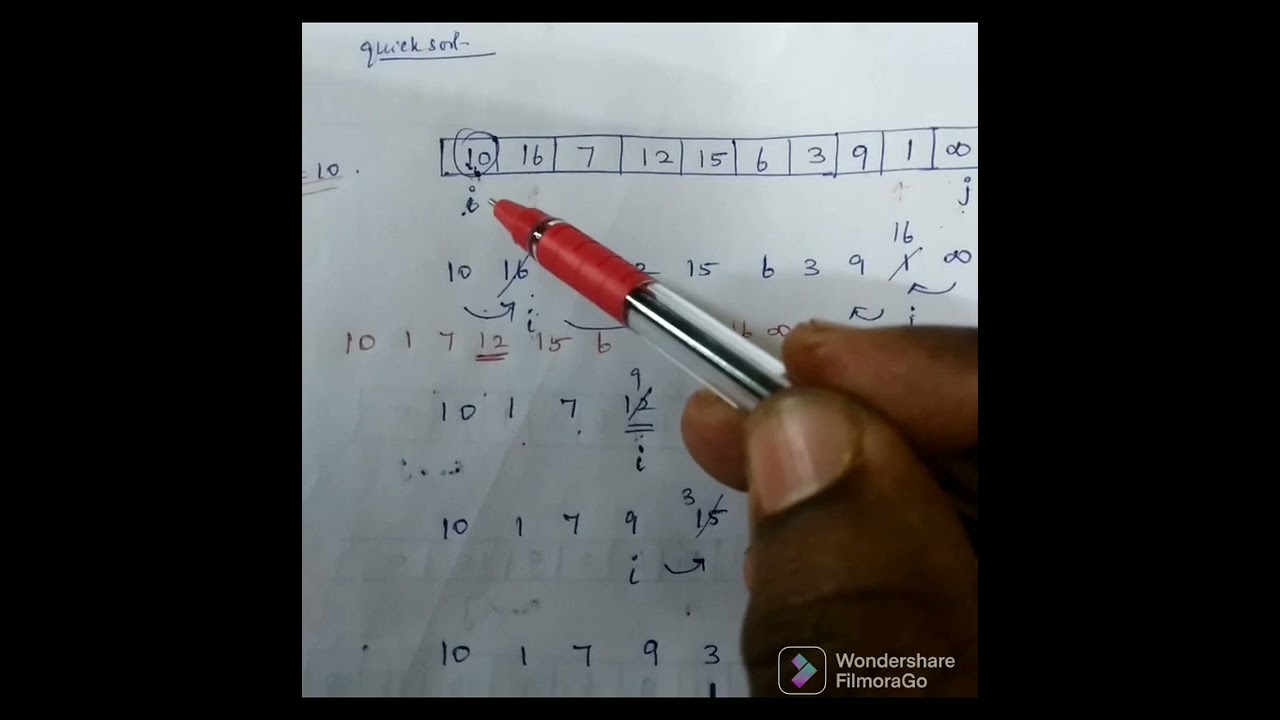 quick sort
10 16 7 12 15 6 3 9 1 ∞
= 10.
i j
16
10 16 2 15 6 3 9 1 ∞
i j
10 1 7 12 15 6 16 ∞
9
10 1 7 12
i
3
10 1 7 9 15
i
10 1 7 9 3
Wondershare
FilmoraGo